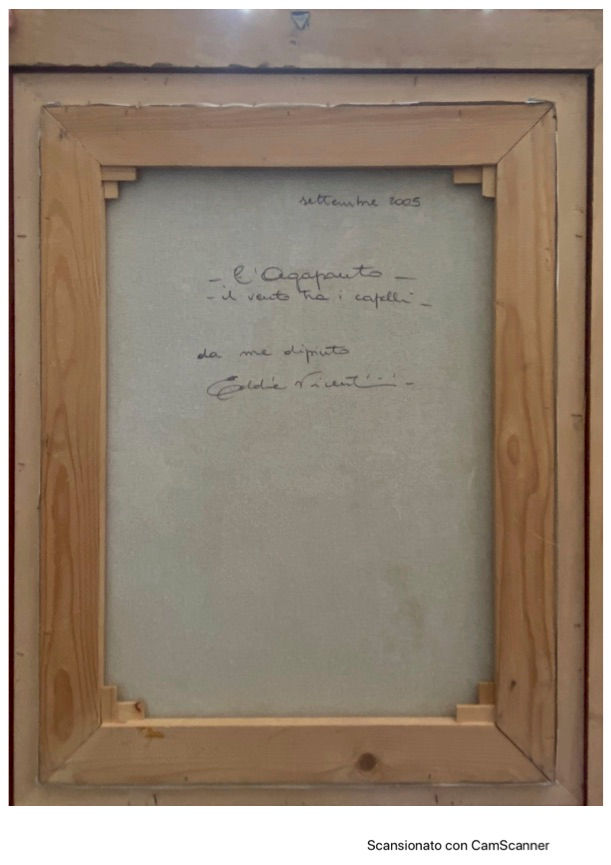 settembre 2005
- l'Agapanto -
- il vento tra i capelli -
da me dipinto
Eddie Vicentini -
Scansionato con CamScanner